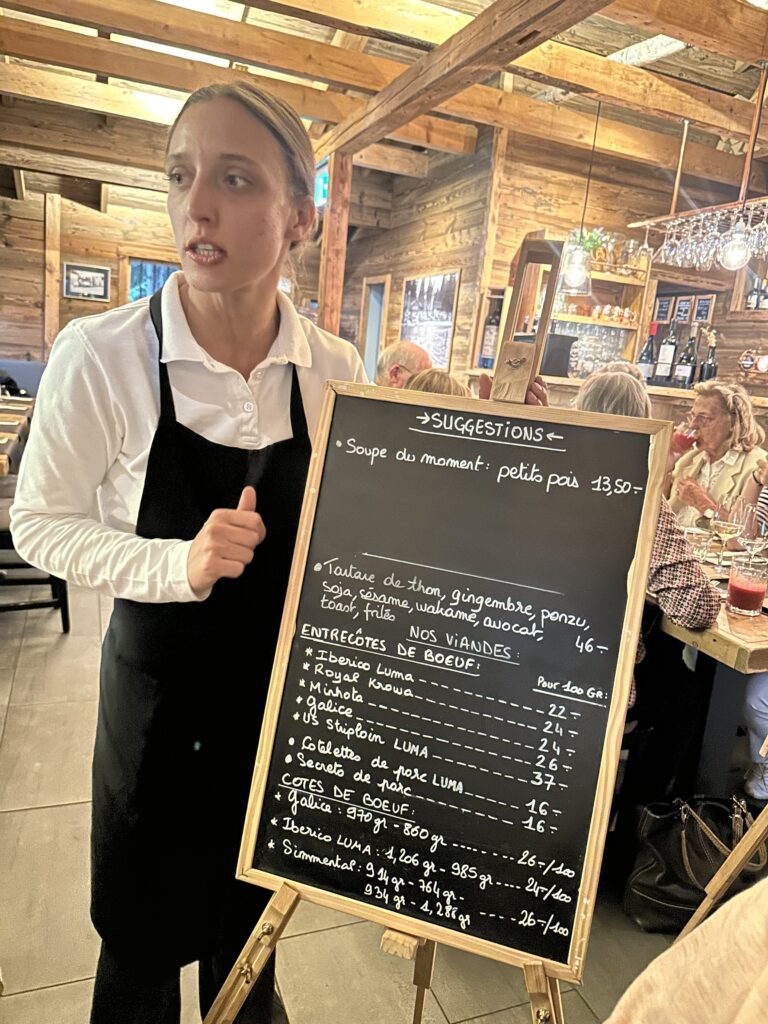 →SUGGESTIONS←
• Soupe du moment : petits pois 13,50.-
• Tartare de thon, gingembre, ponzu,
soja, sésame, wakamé, avocat,
toast, frites 46.-
NOS VIANDES :
ENTRECÔTES DE BOEUF : Pour 100 GR :
* Iberico Luma 22.-
* Royal Krowa 24.-
* Minhota 24.-
* Galice 26.-
* US Striploin LUMA 37.-
• Cotelettes de porc LUMA 16.-
• Secreto de porc 16.-
COTES DE BOEUF :
* Galice : 970 gr - 860 gr 26.-/100
* Iberico LUMA : 1,206 gr - 985 gr 24.-/100
* Simmental : 914 gr - 764 gr -
934 gr - 1,286 gr 26.-/100